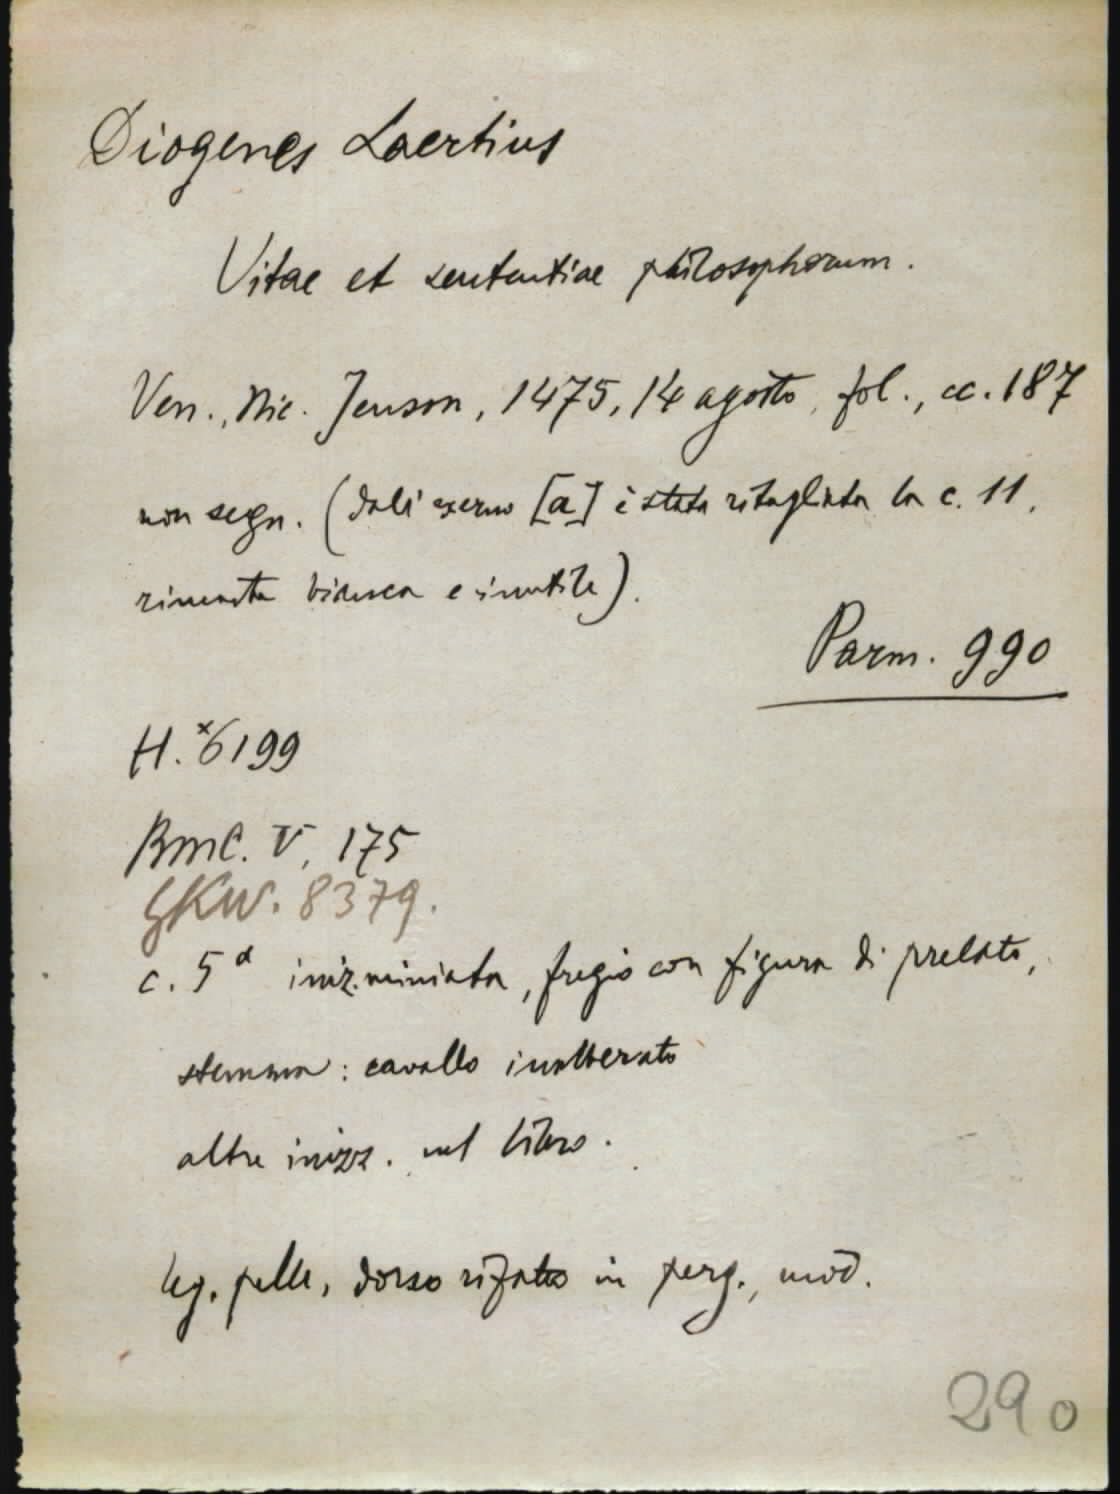 Diogenes Laertius
Vitae et sententiae philosophorum.
Ven., Nic. Jenson, 1475, 14 agosto, fol., cc. 187
non segn. (dal 1° serno [a] è stata ritagliata la c. 11,
rimasta bianca e inutile).
Parm. 990
H.*6199
BMC. V, 175
GKW. 8379.
c. 5ª iniz. miniata, fregio con figura di prelato,
stemma: cavallo inalberato
altre inizz. nel libro.
leg. pelle, dorso rifatto in perg., mod.
290